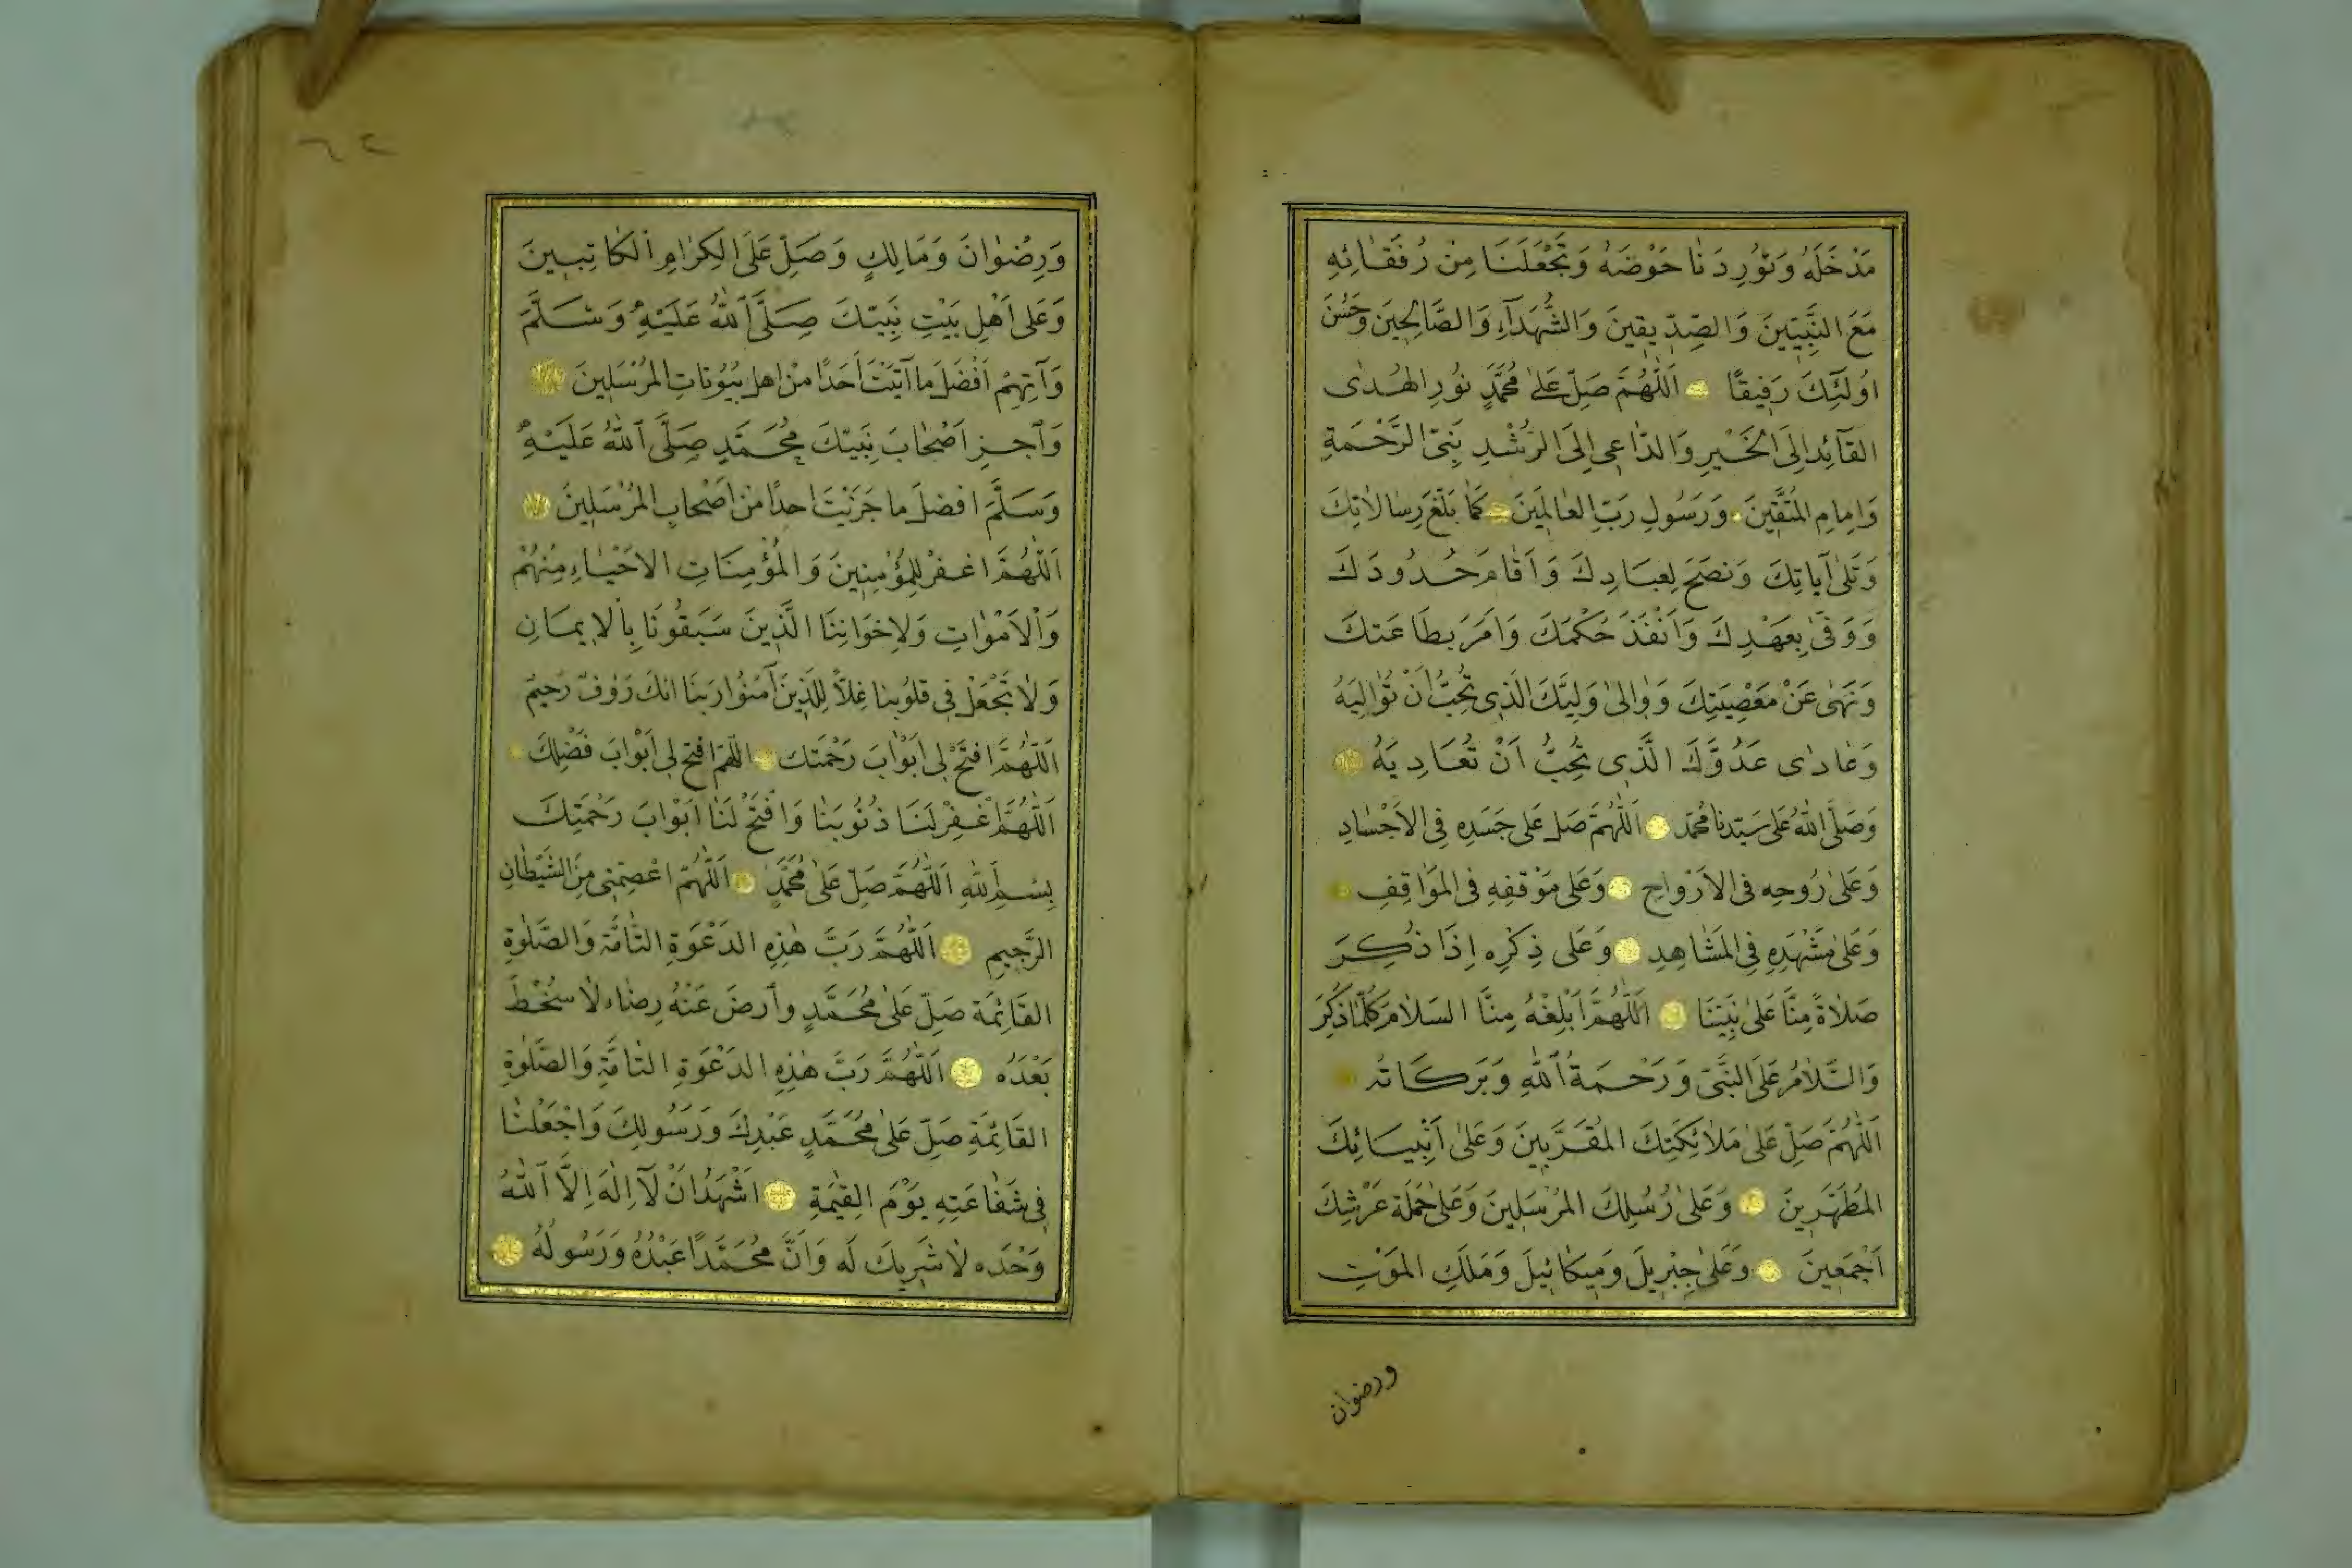 مَدْخَلَهُ وَتُورِدَنَا حَوْضَهُ وَتَجْعَلَنَا مِنْ رُفَقَائِهِ
مَعَ النَّبِيِّينَ وَالصِّدِّيقِينَ وَالشُّهَدَآءِ وَالصَّالِحِينَ وَحَسُنَ
اُولٰٓئِكَ رَفِيقًا اَللّٰهُمَّ صَلِّ عَلٰى مُحَمَّدٍ نُورِ الهُدٰى
القَآئِدِ اِلَى الخَيْرِ وَالدّٰاعِى اِلَى الرُّشْدِ نَبِىِّ الرَّحْمَةِ
وَاِمَامِ المُتَّقِينَ وَرَسُولِ رَبِّ العٰالَمِينَ كَمٰا بَلَّغَ رِسَالاٰتِكَ
وَتَلٰى آيٰاتِكَ وَنَصَحَ لِعِبَادِكَ وَاَقٰامَ حُدُودَكَ
وَوَفٰى بِعَهْدِكَ وَاَنْفَذَ حُكْمَكَ وَاَمَرَ بِطَاعَتِكَ
وَنَهٰى عَنْ مَعْصِيَتِكَ وَوٰالٰى وَلِيَّكَ الَّذِى تُحِبُّ اَنْ تُوٰالِيَهُ
وَعٰادٰى عَدُوَّكَ الَّذِى تُحِبُّ اَنْ تُعَادِيَهُ
وَصَلَّى اللّٰهُ عَلٰى سَيِّدِنَا مُحَمَّد اَللّٰهُمَّ صَلِّ عَلٰى جَسَدِهِ فِى الاَجْسٰادِ
وَعَلٰى رُوحِهِ فِى الاَرْوٰاحِ وَعَلٰى مَوْقِفِهِ فِى المَوَاقِفِ
وَعَلٰى مَشْهَدِهِ فِى المَشَاهِدِ وَعَلٰى ذِكْرِهِ اِذَا ذُكِرَ
صَلاٰةً مِنَّا عَلٰى نَبِيِّنَا اَللّٰهُمَّ اَبْلِغْهُ مِنَّا السَّلاٰمَ كُلَّمَا ذُكِرَ
وَالسَّلاٰمُ عَلَى النَّبِىِّ وَرَحْمَةُ اللّٰهِ وَبَرَكَاتُهُ
اَللّٰهُمَّ صَلِّ عَلٰى مَلاٰئِكَتِكَ المُقَرَّبِينَ وَعَلٰى اَنْبِيَائِكَ
المُطَهَّرِينَ وَعَلٰى رُسُلِكَ المُرْسَلِينَ وَعَلٰى حَمَلَةِ عَرْشِكَ
اَجْمَعِينَ وَعَلٰى جِبْرِيلَ وَمِيكٰائِيلَ وَمَلَكِ المَوْتِ
ورضوان
٦٢
وَرِضْوٰانَ وَمَالِكٍ وَصَلِّ عَلَى الكِرٰامِ الكَاتِبِينَ
وَعَلٰى اَهْلِ بَيْتِ نَبِيِّكَ صَلَّى اللّٰهُ عَلَيْهِ وَسَلَّمَ
وَآتِهِمْ اَفْضَلَ مَا آتَيْتَ اَحَدًا مِنْ اهلِ بُيُوتَاتِ المُرْسَلِينَ
وَاجْزِ اَصْحَابَ نَبِيِّكَ مُحَمَّدٍ صَلَّى اللّٰهُ عَلَيْهِ
وَسَلَّمَ افضلَ ما جَزَيْتَ احدًا مِنْ اَصْحَابِ المُرْسَلِينَ
اَللّٰهُمَّ اغْفِرْ لِلْمُؤْمِنِينَ وَالْمُؤْمِنَاتِ الاَحْيٰاءِ مِنْهُمْ
وَالْاَمْوٰاتِ وَلِاِخْوَانِنَا الَّذِينَ سَبَقُونَا بِالاِيمَانِ
وَلاٰ تَجْعَلْ فِى قلُوُبِنا غِلاًّ لِلَّذِينَ آمَنُوا رَبَنَا انكَ رَؤُفٌ رَحِيمٌ
اَللّٰهُمَّ افتَحْ لِى اَبْوٰابَ رَحْمَتِك اَللّٰهُمَّ افتح لِى اَبْوٰابَ فَضْلِكَ
اَللّٰهُمَّ اغْفِرْ لَنَا ذُنُوبَنٰا وَافْتَحْ لَنٰا اَبْوَابَ رَحْمَتِكَ
بِسْمِ اللّٰهِ اَللّٰهُمَّ صَلِّ عَلٰى مُحَمَّدٍ اَللّٰهُمَّ اعْصِمْنِى مِنَ الشَّيْطٰانِ
الرَّجِيمِ اَللّٰهُمَّ رَبَّ هٰذِهِ الدَعْوَةِ التّٰامَّةِ وَالصَّلٰوةِ
القَائِمَةِ صَلِّ عَلٰى مُحَمَّدٍ وارضَ عَنْهُ رِضٰاء لاٰ سُخْطَ
بَعْدَهُ اَللّٰهُمَّ رَبَّ هٰذِهِ الدَعْوَةِ التّٰامَّةِ وَالصَّلٰوةِ
القَائِمَةِ صَلِّ عَلٰى مُحَمَّدٍ عَبْدِكَ وَرَسُولِكَ وَاجْعَلْنٰا
فِى شَفٰاعَتِهِ يَوْمَ القِيٰمَةِ اَشْهَدُ اَنْ لَآ اِلٰهَ اِلَّا اللّٰهُ
وَحْدَه لاٰ شَرِيكَ لَه وَاَنَّ مُحَمَّدًا عَبْدُهُ وَرَسُولُهُ